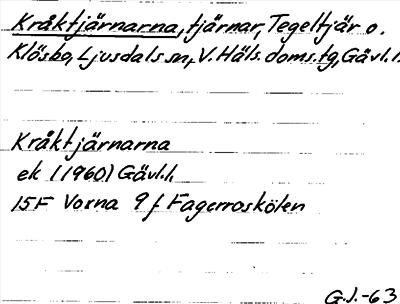 Kråktjärnarna, tjärnar, Tegeltjär o.
Klösbo, Ljusdals sn, V. Häls. doms. tg, Gävl. l.
Kråktjärnarna
ek (1960) Gävl. l.
15F Voxna 9 f Fagerroskölen
G.J.-63